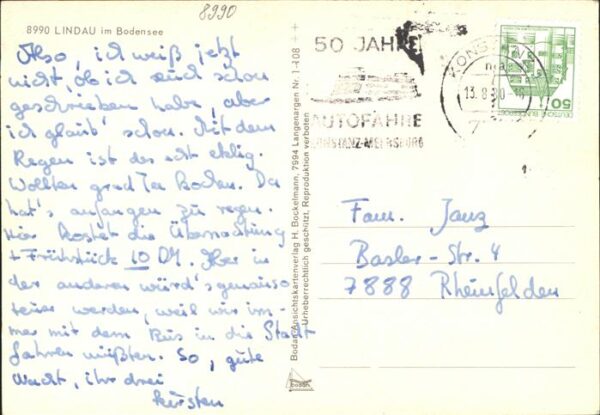 8990
8990 LINDAU im Bodensee
Also, ich weiß jetzt
nicht, ob ich euch schon
geschrieben habe, aber
ich glaub' schon. Mit dem
Regen ist das echt eklig.
Wollten grad baden. Da
hat's anfangen zu regnen.
Hier kostet die Übernachtung
+ Frühstück 10 DM. Aber in
der anderen würd's genauso
teuer werden, weil wir im-
mer mit dem Bus in die Stadt
fahren müßten. So, gute
Nacht, ihr drei
Kirsten
Bodan-Ansichtskartenverlag H. Bockelmann, 7994 Langenargen Nr. 1-108
Urheberrechtlich geschützt, Reproduktion verboten
bodan
50 JAHRE
AUTOFÄHRE
KONSTANZ-MEERSBURG
KONSTANZ
13.8.80
50
DEUTSCHE BUNDESPOST
Fam. Janz
Basler-Str. 4
7888 Rheinfelden